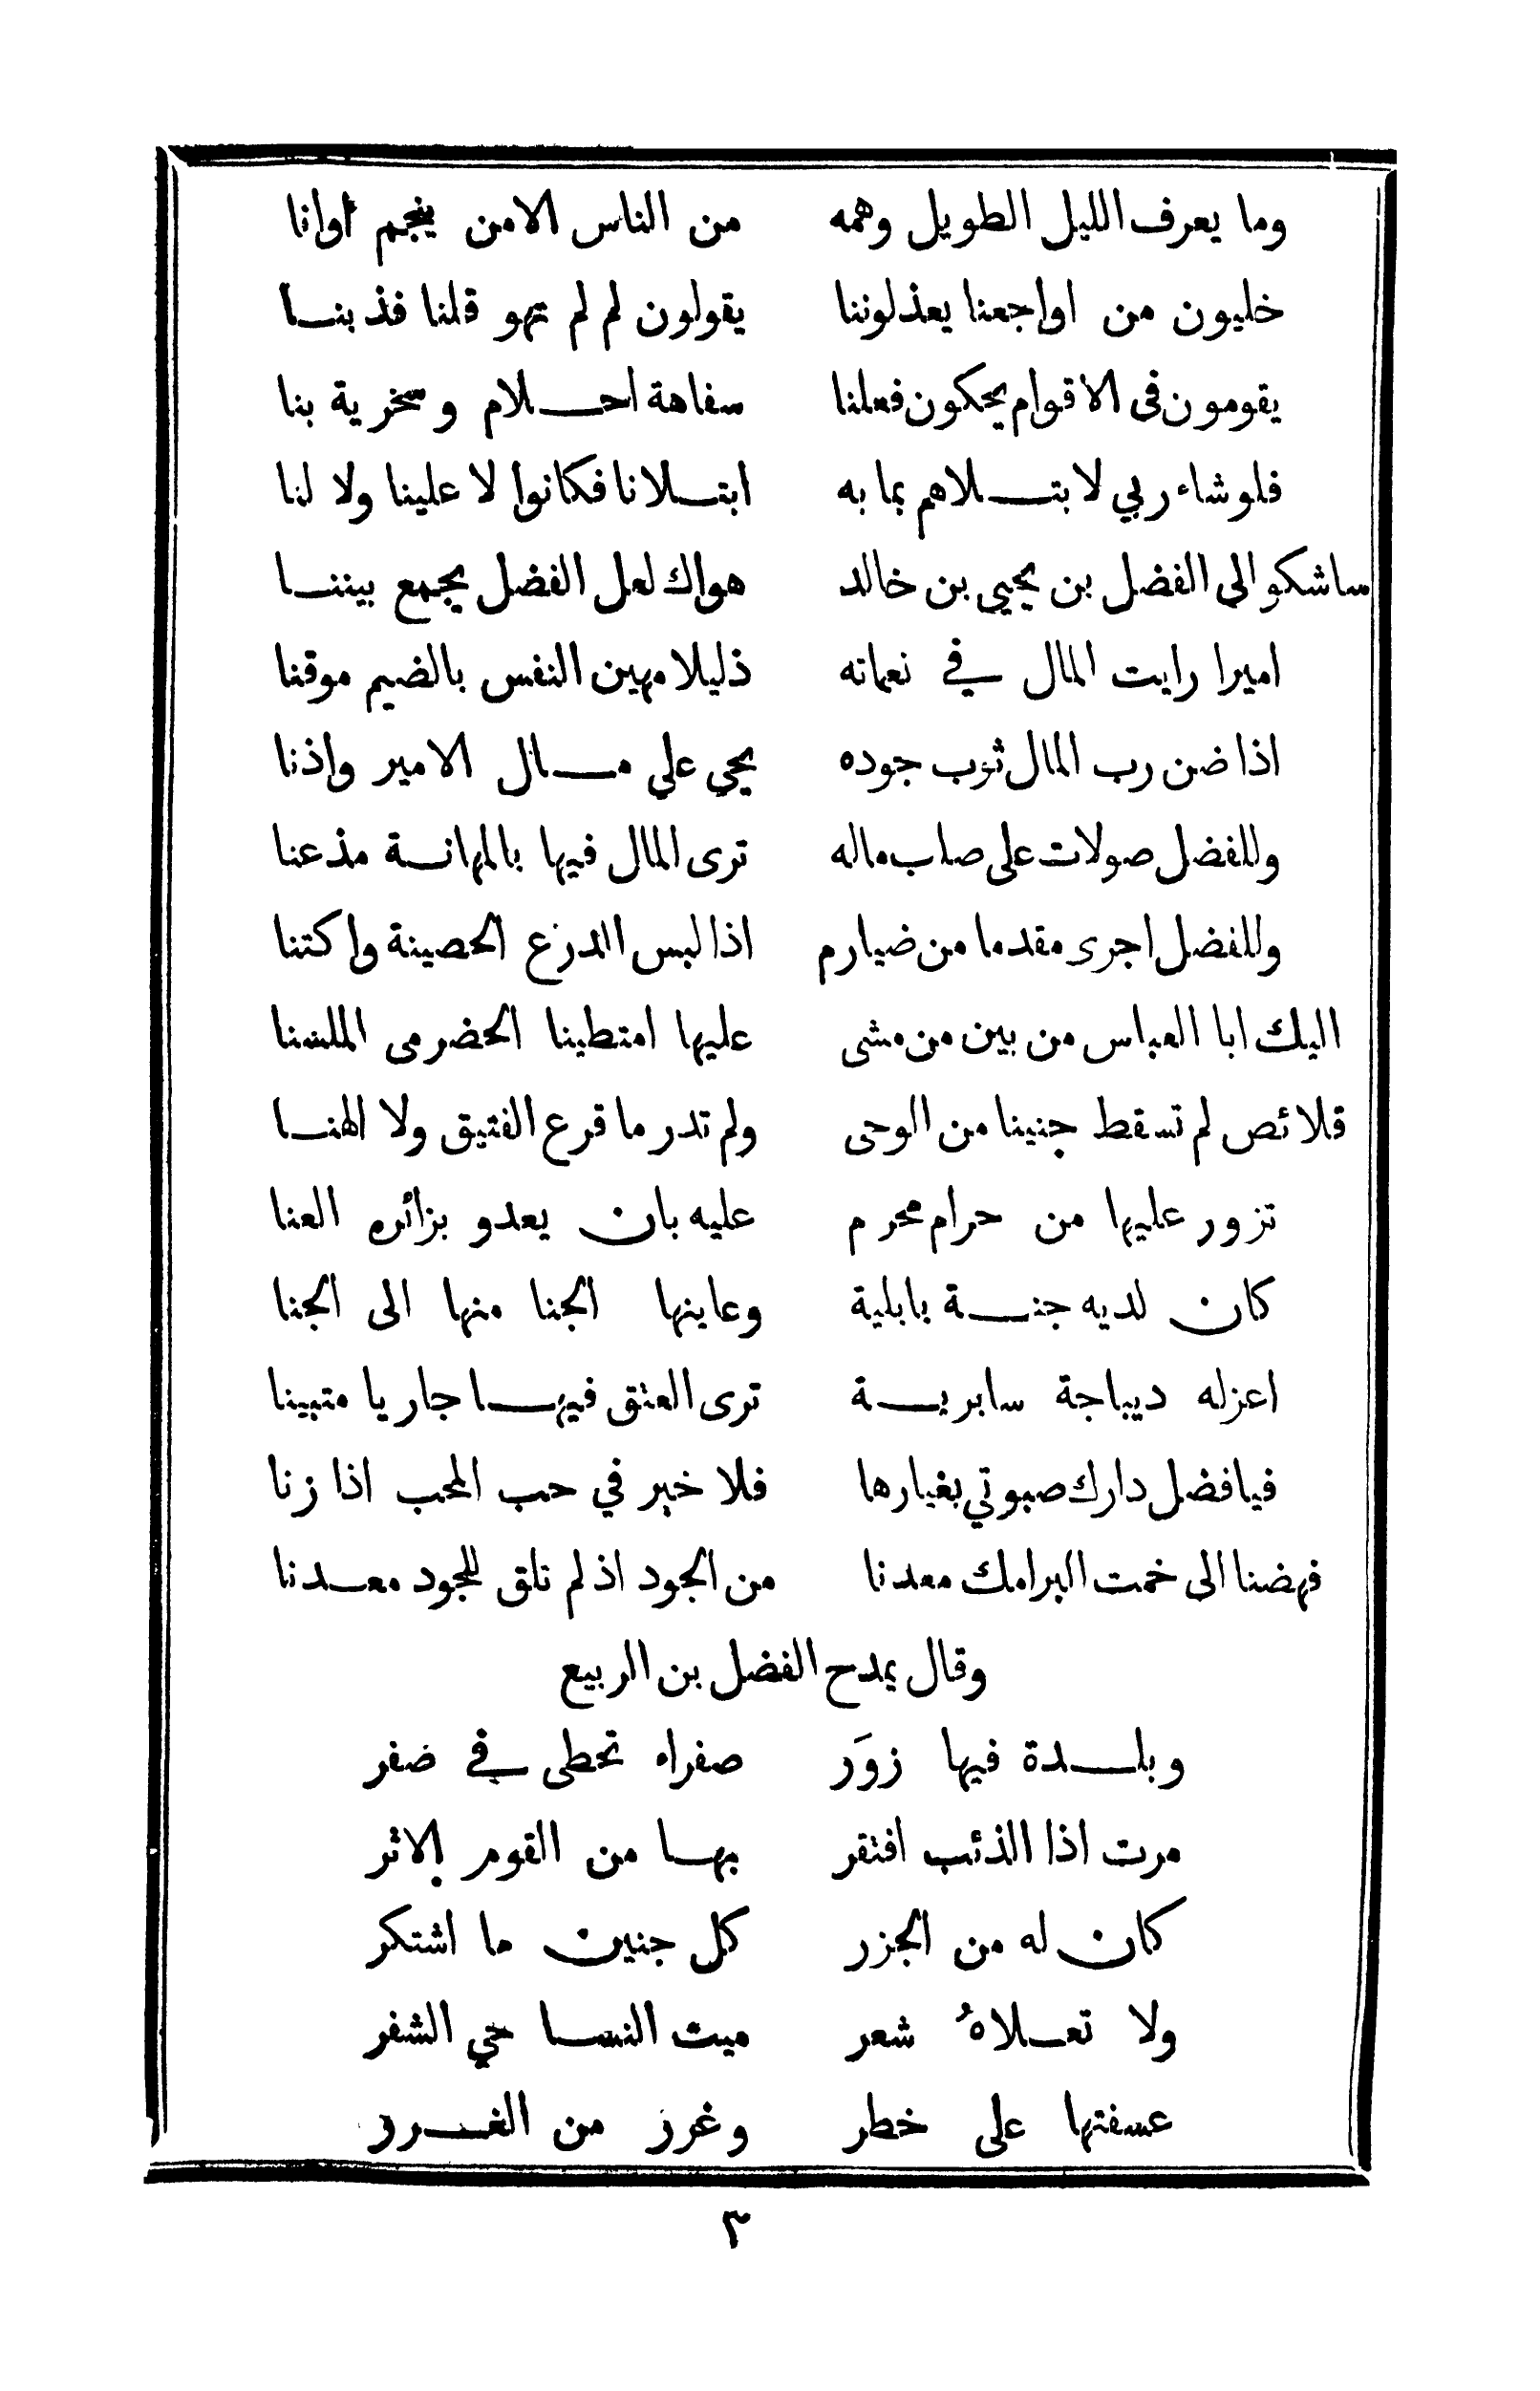 وما يعرف الليل الطويل وهمه من الناس الامن ينجم اوانا
خليون من اواجعنا يعذلوننا يقولون لم لم تهو قلنا فذبنا
يقومون في الاقوام يحكون فعلنا سفاهة احلام وسخرية بنا
فلو شاء ربي لابتلاهم بما به ابتلانا فكانوا لا علينا ولا لنا
ساشكو الى الفضل بن يحيى بن خالد هواك لعل الفضل يجمع بيننا
اميرا رايت المال في نعماته ذليلا مهين النفس بالضيم موقنا
اذا ضن رب المال ثوب جوده يحي علي مال الامير واذنا
وللفضل صولات على صاب ماله ترى المال فيها بالمهانة مذعنا
وللفضل اجرى مقدما من ضيارم اذا لبس الدرع الحصينة واكتنا
اليك ابا العباس من بين من مشى عليها امتطينا الحضرمي الملسنا
قلائص لم تسقط جنينا من الوحى ولم تدر ما قرع الفتيق ولا الهنا
تزور عليها من حرام محرم عليه بان يعدو بزائره العنا
كان لديه جنة بابلية وعاينها الجنا منها الى الجنا
اعزله ديباجة سابرية ترى العتق فيها جاريا متبينا
فيا فضل دارك صبوتي بغيارها فلا خير في حب المحب اذا زنا
فهضنا الى خمت البرامك معدنا من الجود اذ لم نلق للجود معدنا
وقال يمدح الفضل بن الربيع
وبلدة فيها زوَر صفراه تحطى في ضفر
مرت اذا الذئب افتقر بها من القوم الاثر
كان له من الجزر كل جنين ما اشتكر
ولا تعلاهُ شعر ميت النسا حي الشفر
عسفتها على خطر وغرز من الغرر
٣